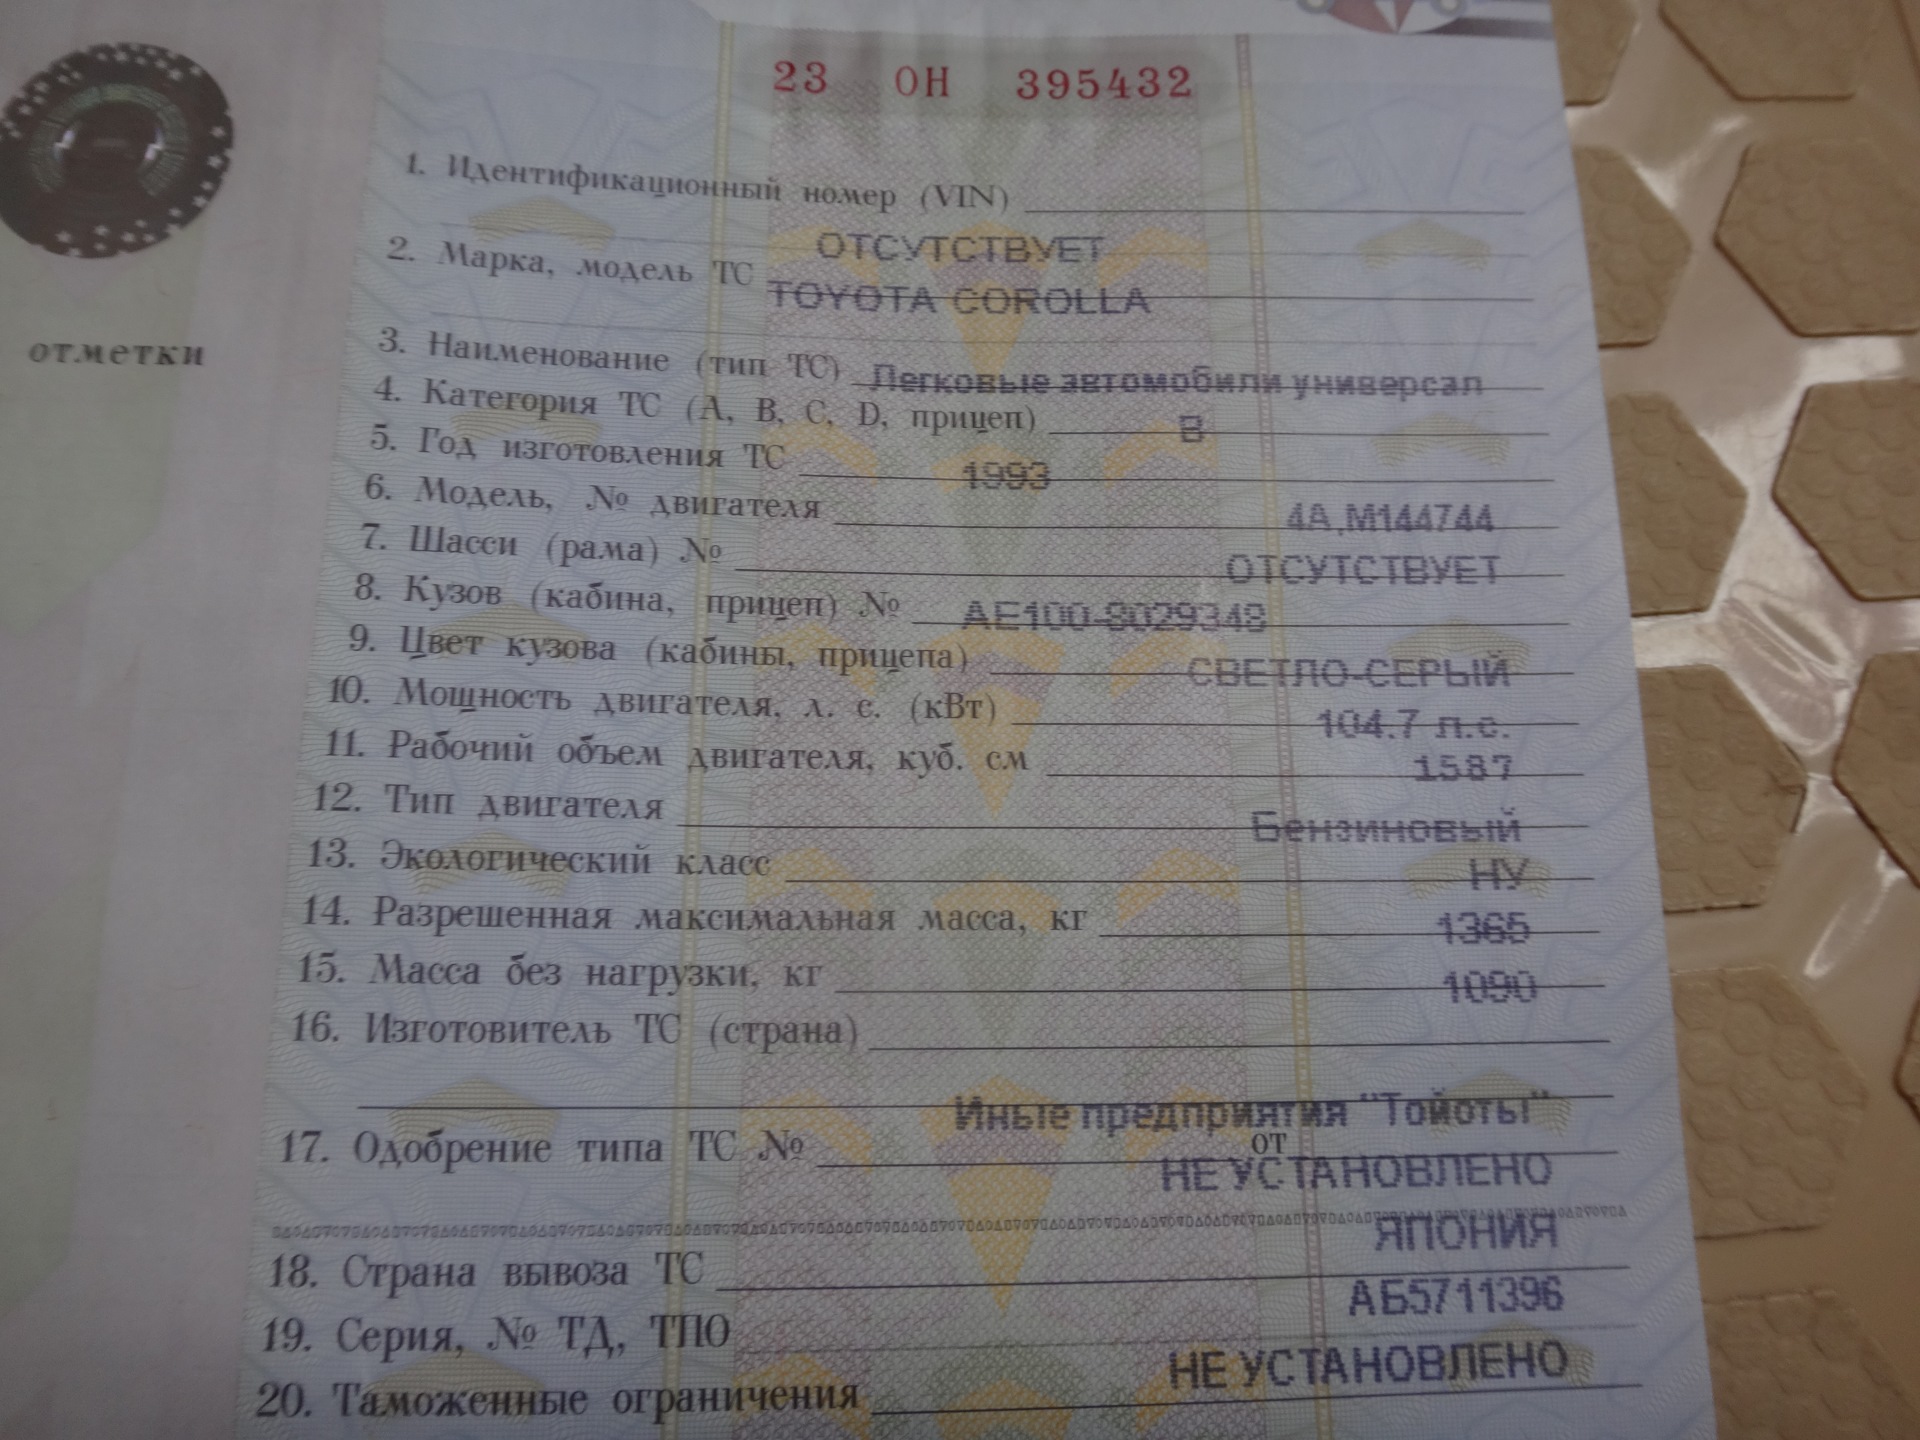 23 ОН 395432
отметки
1. Идентификационный номер (VIN)
ОТСУТСТВУЕТ
2. Марка, модель ТС
TOYOTA COROLLA
3. Наименование (тип ТС) Легковые автомобили универсал
4. Категория ТС (А, В, С, D, прицеп) В
5. Год изготовления ТС 1993
6. Модель, № двигателя 4А,М144744
7. Шасси (рама) № ОТСУТСТВУЕТ
8. Кузов (кабина, прицеп) № АЕ100-8029348
9. Цвет кузова (кабины, прицепа) СВЕТЛО-СЕРЫЙ
10. Мощность двигателя, л. с. (кВт) 104.7 л.с.
11. Рабочий объем двигателя, куб. см 1587
12. Тип двигателя Бензиновый
13. Экологический класс НУ
14. Разрешенная максимальная масса, кг 1365
15. Масса без нагрузки, кг 1090
16. Изготовитель ТС (страна)
Иные предприятия "Тойоты"
17. Одобрение типа ТС № от
НЕ УСТАНОВЛЕНО
ЯПОНИЯ
18. Страна вывоза ТС
АБ5711396
19. Серия, № ТД, ТПО
НЕ УСТАНОВЛЕНО
20. Таможенные ограничения